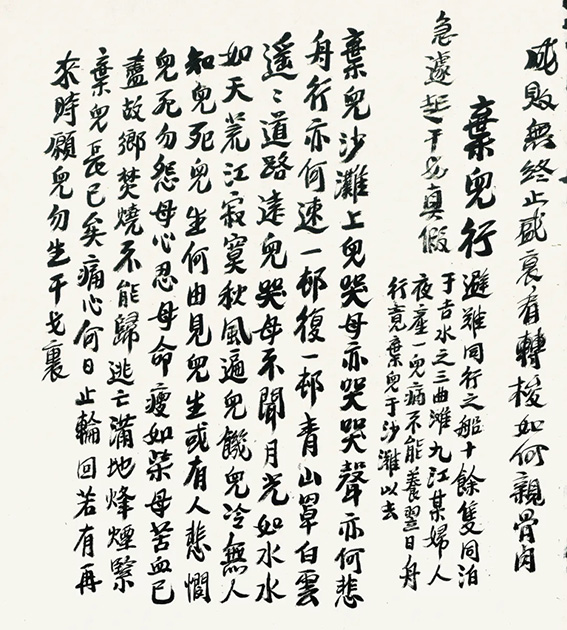 成敗無終止盛衰看轉梭如何親骨肉
棄兒行
避難同行之船十餘隻同泊
于吉水之三曲滩九江某婦人
夜産一兒病不能養翌日舟
行竟棄兒于沙灘以去
急遽起干戈真假
棄兒沙灘上兒哭母亦哭哭聲亦何悲
舟行亦何速一邨復一邨青山罩白雲
遥〻道路遠兒哭母不聞月光如水水
如天荒江寂寞秋風遍兒饑兒冷無人
知兒死兒生何由見兒生或有人悲憫
兒死勿怨母心忍母命瘦如柴母苦血已
盡故鄉焚燒不能歸逃亡滿地烽煙緊
棄兒長已矣痛心何日止輪回若有再
來時願兒勿生干戈裏